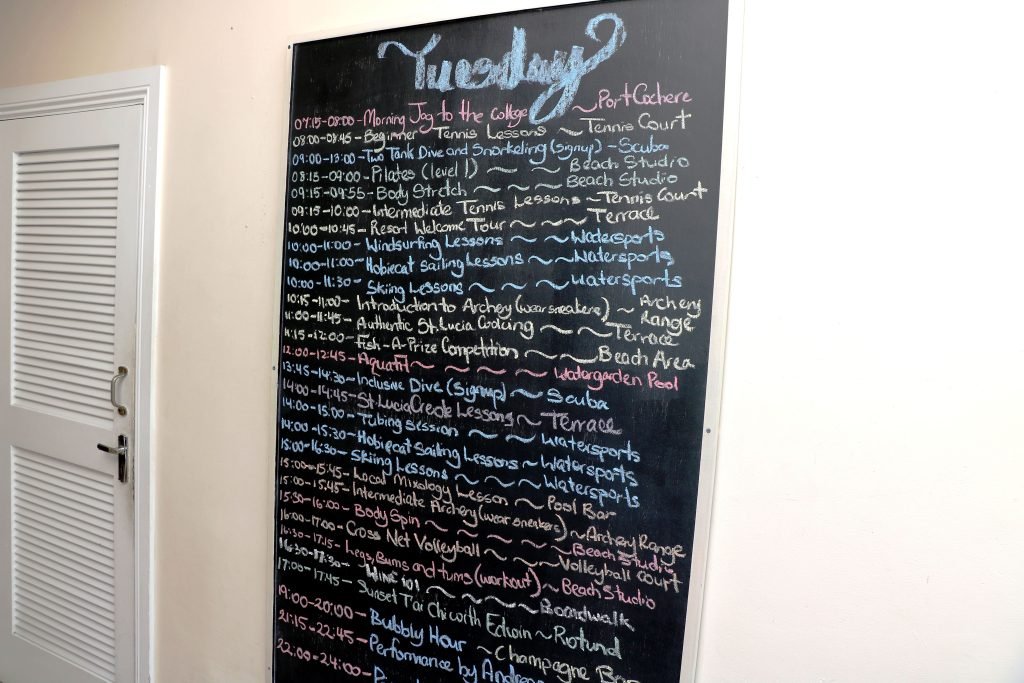 Tuesday
07:15-08:00-Morning Jog to the college ~PortCochere
08:00-08:45-Beginner Tennis Lessons ~Tennis Court
09:00-13:00-Two Tank Dive and Snorkeling (signup) ~Scuba
08:15-09:00-Pilates (level 1) ~ ~ Beach Studio
09:15-09:55-Body Stretch ~ ~ ~ ~Beach Studio
09:15-10:00-Intermediate Tennis Lessons ~Tennis Court
10:00-10:45-Resort Welcome Tour ~ ~Terrace
10:00-11:00- Windsurfing Lessons ~ ~Watersports
10:00-11:00- Hobiecat Sailing Lessons ~ ~Watersports
10:00-11:30- Skiing Lessons ~ ~ ~ ~Watersports
10:15-11:00- Introduction to Archery (wear sneakers) ~ Archery Range
11:00-11:45- Authentic St.Lucia Cooking ~ ~Terrace
11:15-12:00- Fish-A-Prize Competition ~ ~Beach Area
12:00-12:45-AquaFit ~ ~ ~ ~ ~ Watergarden Pool
13:45-14:30-Inclusive Dive (signup) ~ Scuba
14:00-14:45-St.Lucia Creole Lessons ~ Terrace
14:00-15:00- Tubing Session ~ ~ ~ Watersports
14:00-15:30-Hobiecat Sailing Lessons ~ Watersports
15:00-16:30-Skiing Lessons ~ ~ ~ Watersports
15:00-15:45-Local Mixology Lesson ~ Pool Bar
15:00-15:45-Intermediate Archery (wear sneakers) ~Archery Range
15:30-16:00-Body Spin ~ ~ ~ ~ ~Beach Studio
16:00-17:00-Cross Net Volleyball ~ ~Volleyball Court
16:30-17:15-Legs, Bums and tums (workout) ~Beach Studio
16:30-17:30- Wine 101 ~ ~ ~ ~Boardwalk
17:00-17:45-Sunset T'ai Chi with Edwin ~Rotund
19:00-20:00-Bubbly Hour ~Champagne Bar
21:15-22:45-Performance by
22:00-24:00-